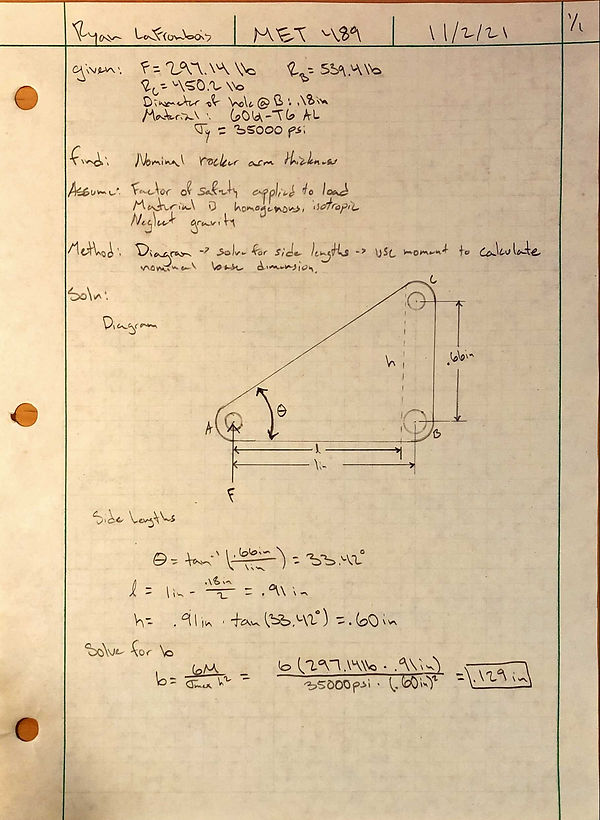 Ryan LaFrombois MET 489 11/2/21 1/1
given: F = 297.14 lb R_B = 539.4 lb
R_C = 450.2 lb
Diameter of hole @ B: .18in
Material: 6061-T6 AL
σy = 35000 psi
find: Nominal rocker arm thickness
Assume: Factor of safety applied to load
Material is homogenous, isotropic
Neglect gravity
Method: Diagram -> solve for side lengths -> use moment to calculate
nominal base dimension.
Soln:
Diagram
C
h
.66in
θ
A
B
l
1in
F
Side Lengths
θ = tan⁻¹ (.66in/1in) = 33.42°
l = 1in - .18in/2 = .91 in
h = .91in · tan(33.42°) = .60in
Solve for b
b = 6M/σmax h² = 6(297.14lb · .91in)/35000psi · (.60in)² = .129 in